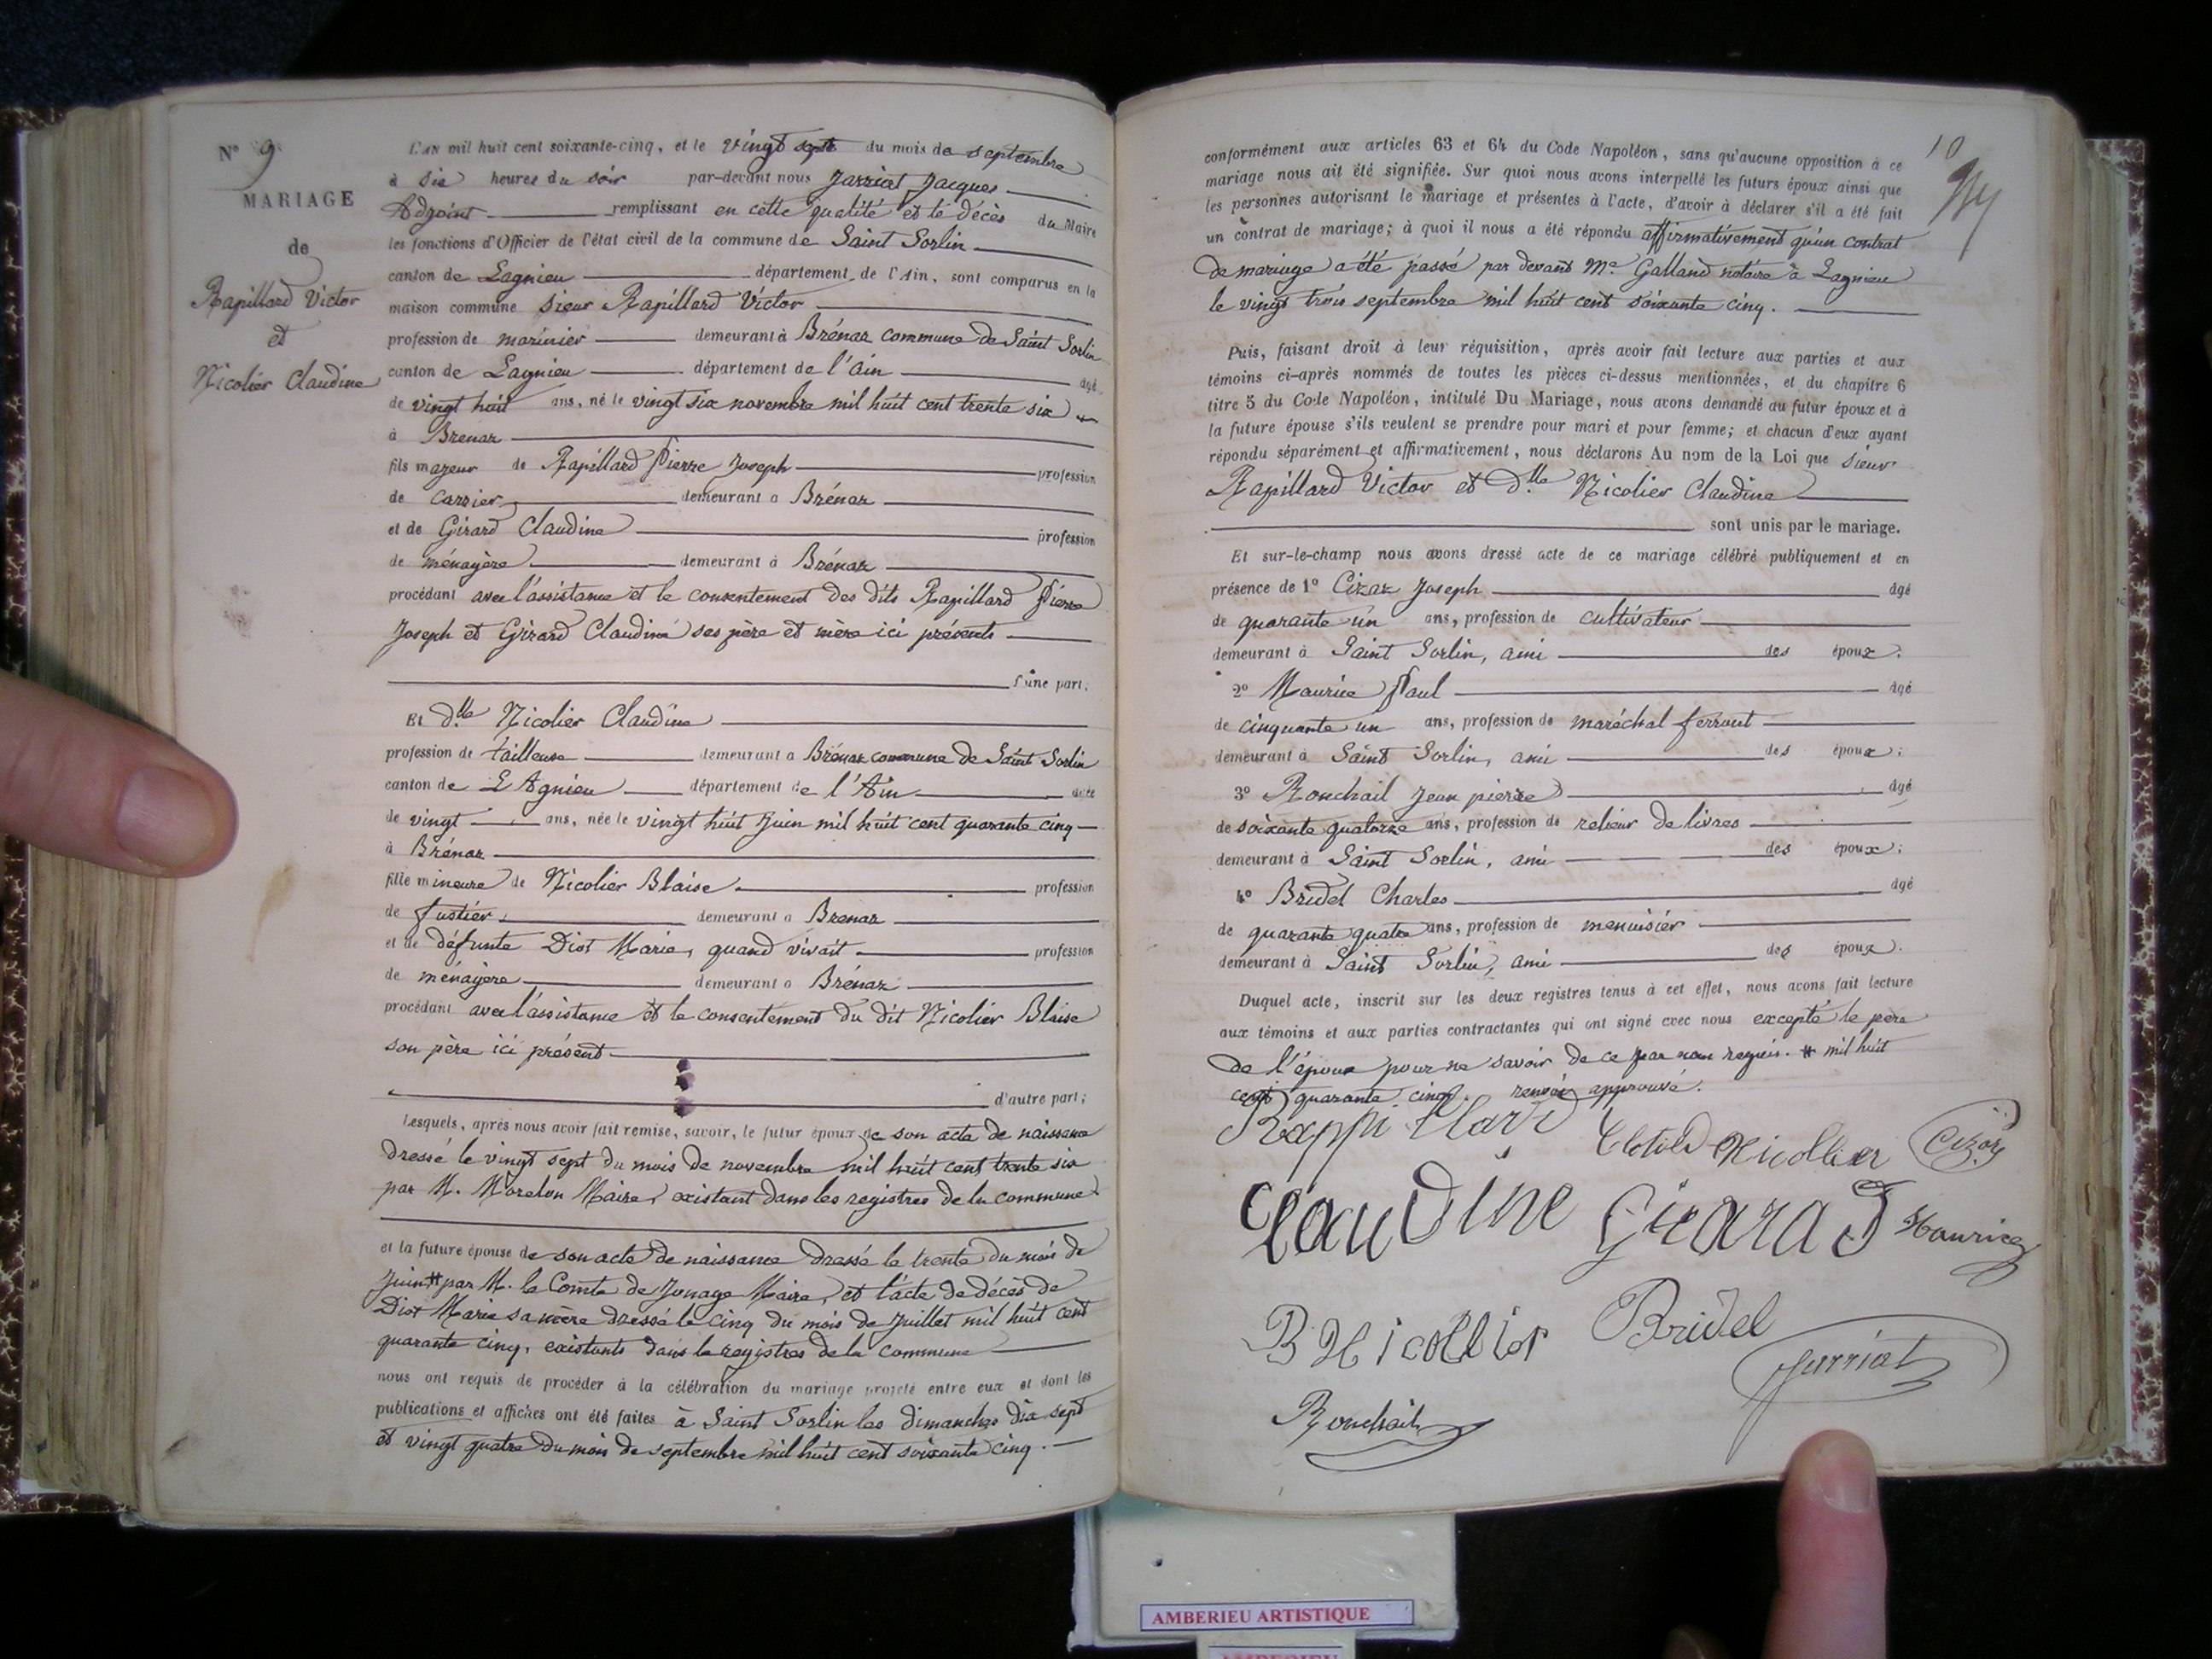 N° 9
MARIAGE
de
Rapillard Victor
et
Nicolier Claudine
L'AN mil huit cent soixante-cinq, et le vingt sept du mois de septembre
à six heures du soir par-devant nous Jarriat Jacques
Adjoint remplissant en cette qualité et le décès du Maire
les fonctions d'Officier de l'état civil de la commune de Saint Sorlin
canton de Lagnieu département de l'Ain, sont comparus en la
maison commune sieur Rapillard Victor
profession de marinier demeurant à Brénaz commune de Saint Sorlin
canton de Lagnieu département de l'ain âgé
de vingt huit ans, né le vingt six novembre mil huit cent trente six
à Brenaz
fils majeur de Rapillard Pierre Joseph profession
de carrier demeurant à Brénaz
et de Girard Claudine profession
de ménagère demeurant à Brénaz
procédant avec l'assistance et le consentement des dits Rapillard Pierre
Joseph et Girard Claudine ses père et mère ici présents
d'une part;
Et dlle Nicolier Claudine
profession de tailleuse demeurant à Brénaz commune de Saint Sorlin
canton de L Agnieu département de l'Ain âgée
de vingt ans, née le vingt huit Juin mil huit cent quarante cinq
à Brénaz
fille mineure de Nicolier Blaise profession
de fustier demeurant à Brenaz
et de défunte Diot Marie, quand vivait profession
de ménagère demeurant à Brénaz
procédant avec l'assistance et le consentement du dit Nicolier Blaise
son père ici présent
d'autre part;
Lesquels, après nous avoir fait remise, savoir, le futur époux de son acte de naissance
dressé le vingt sept du mois de novembre mil huit cent trente six
par M. Morelon Maire, existant dans les registres de la commune
et la future épouse de son acte de naissance dressé le trente du mois de
Juin # par M. le Comte de Jonage Maire, et l'acte de décès de
Diot Marie sa mère dressé le cinq du mois de Juillet mil huit cent
quarante cinq, existants dans le registres de la commune
nous ont requis de procéder à la célébration du mariage projeté entre eux et dont les
publications et affiches ont été faites à Saint Sorlin les dimanches dix sept
et vingt quatre du mois de septembre mil huit cent soixante cinq.
10
conformément aux articles 63 et 64 du Code Napoléon, sans qu'aucune opposition à ce
mariage nous ait été signifiée. Sur quoi nous avons interpellé les futurs époux ainsi que
les personnes autorisant le mariage et présentes à l'acte, d'avoir à déclarer s'il a été fait
un contrat de mariage; à quoi il nous a été répondu affirmativement qu'un contrat
de mariage a été passé par devant Me Galland notaire à Lagnieu
le vingt trois septembre mil huit cent soixante cinq.
Puis, faisant droit à leur réquisition, après avoir fait lecture aux parties et aux
témoins ci-après nommés de toutes les pièces ci-dessus mentionnées, et du chapitre 6
titre 5 du Code Napoléon, intitulé Du Mariage, nous avons demandé au futur époux et à
la future épouse s'ils veulent se prendre pour mari et pour femme; et chacun d'eux ayant
répondu séparément et affirmativement, nous déclarons Au nom de la Loi que sieur
Rapillard Victor et Dlle Nicolier Claudine
sont unis par le mariage.
Et sur-le-champ nous avons dressé acte de ce mariage célébré publiquement et en
présence de 1° Cizaz Joseph âgé
de quarante un ans, profession de cultivateur
demeurant à Saint Sorlin, ami des époux.
2° Maurice Paul âgé
de cinquante un ans, profession de maréchal ferrant
demeurant à Saint Sorlin, ami des époux;
3° Ronchail Jean pierre âgé
de soixante quatorze ans, profession de relieur de livres
demeurant à Saint Sorlin, ami des époux;
4° Bridel Charles âgé
de quarante quatre ans, profession de menuisier
demeurant à Saint Sorlin, ami des époux.
Duquel acte, inscrit sur les deux registres tenus à cet effet, nous avons fait lecture
aux témoins et aux parties contractantes qui ont signé avec nous excepté le père
de l'époux pour ne savoir de ce par nous requis. # mil huit
cent quarante cinq. renvoi approuvé.
Rappillard Clotild Nicollier
Claudine Girard Maurice
B Nicollier Bridel
Jarriat
Ronchail
AMBERIEU ARTISTIQUE